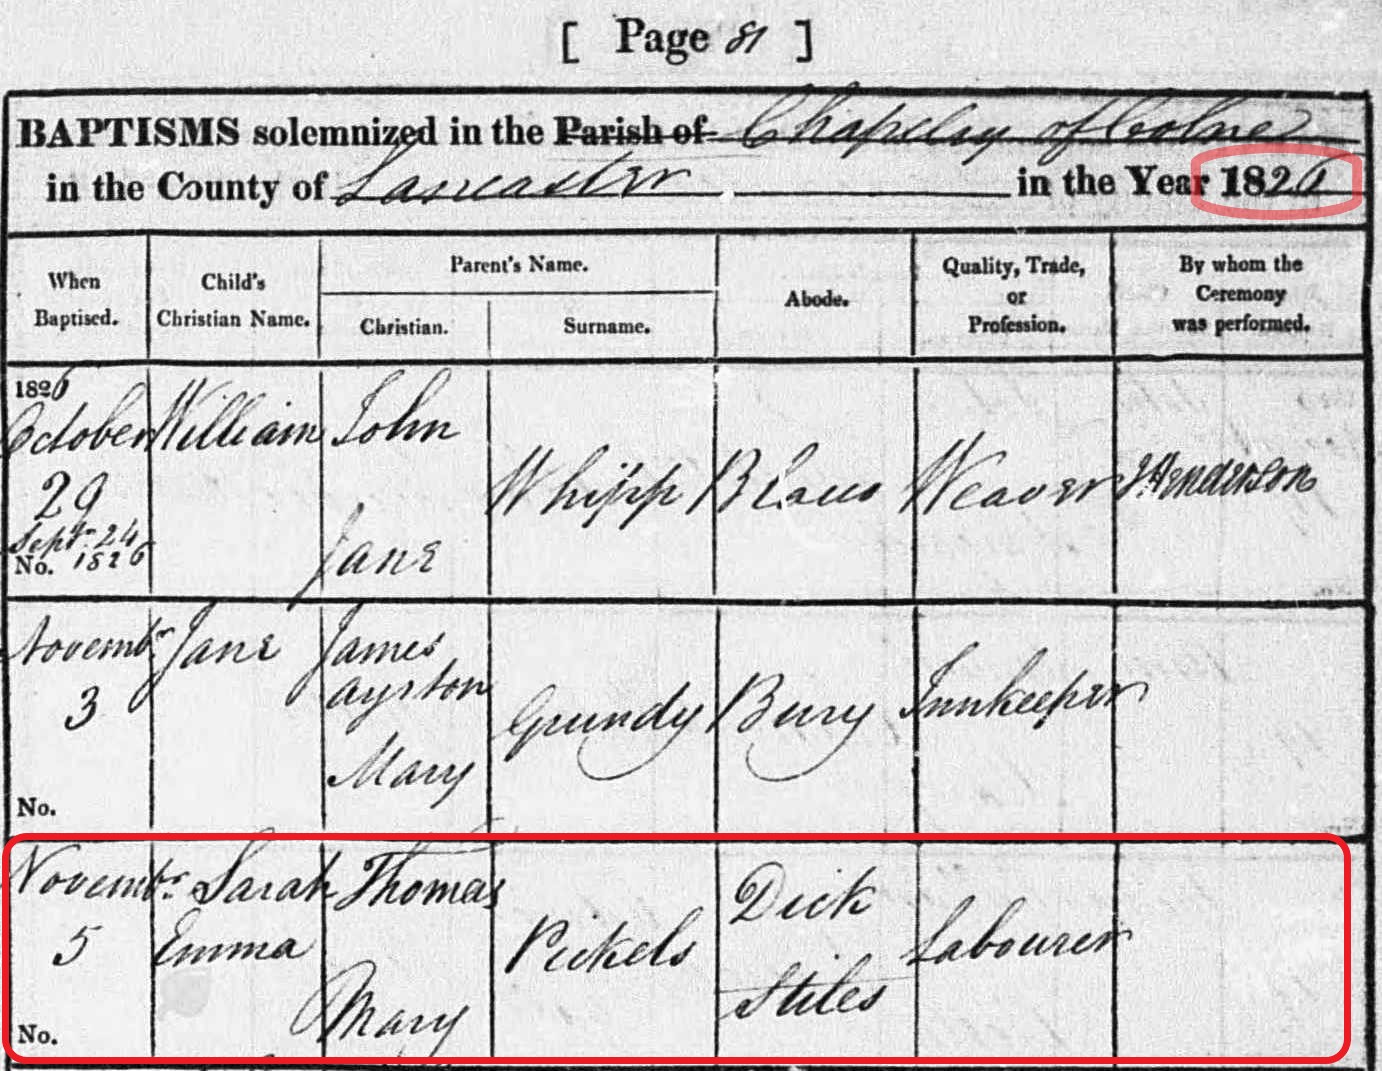 [ Page 81 ]
BAPTISMS solemnized in the Parish of Chapelry of Colne
in the County of Lancaster in the Year 1826
When Baptised.
Child's Christian Name.
Parent's Name.
Christian.
Surname.
Abode.
Quality, Trade, or Profession.
By whom the Ceremony was performed.
1826
October
29
Sept. 24
No. 1826
William
John
Jane
Whipp
Blaco
Weaver
J. Henderson
Novembr
3
No.
Jane
James
Ayrton
Mary
Grundy
Bury
Innkeeper
Novembr.
5
No.
Sarah
Emma
Thomas
Mary
Pickels
Dick
Stiles
Labourer